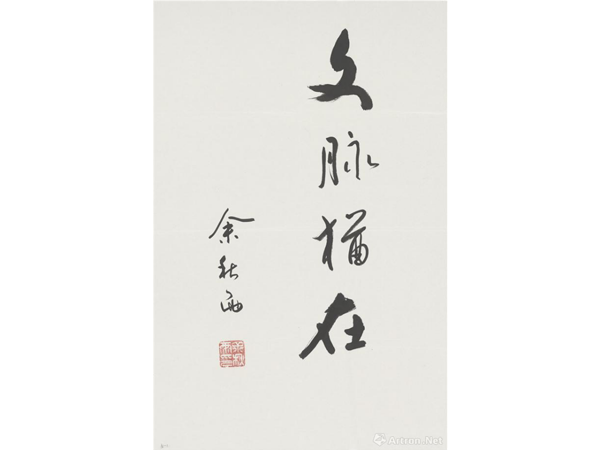 文脉猶在
余秋雨
Artron.Net